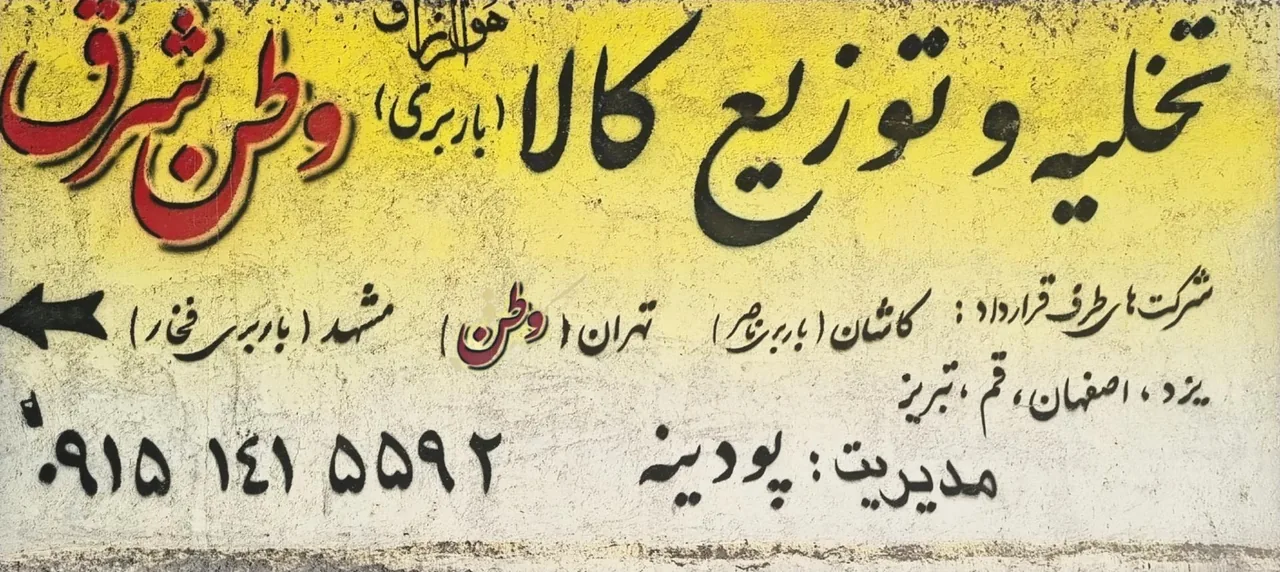 هوالرزاق
تخلیه و توزیع کالا (باربری) وطن شرق
شرکت های طرف قرارداد : کاشان (باربری ناصر) تهران (وطن) مشهد (باربری فخار)
یزد ، اصفهان ، قم ، تبریز
مدیریت : پودینه ۰۹۱۵ ۱۴۱ ۵۵۹۲